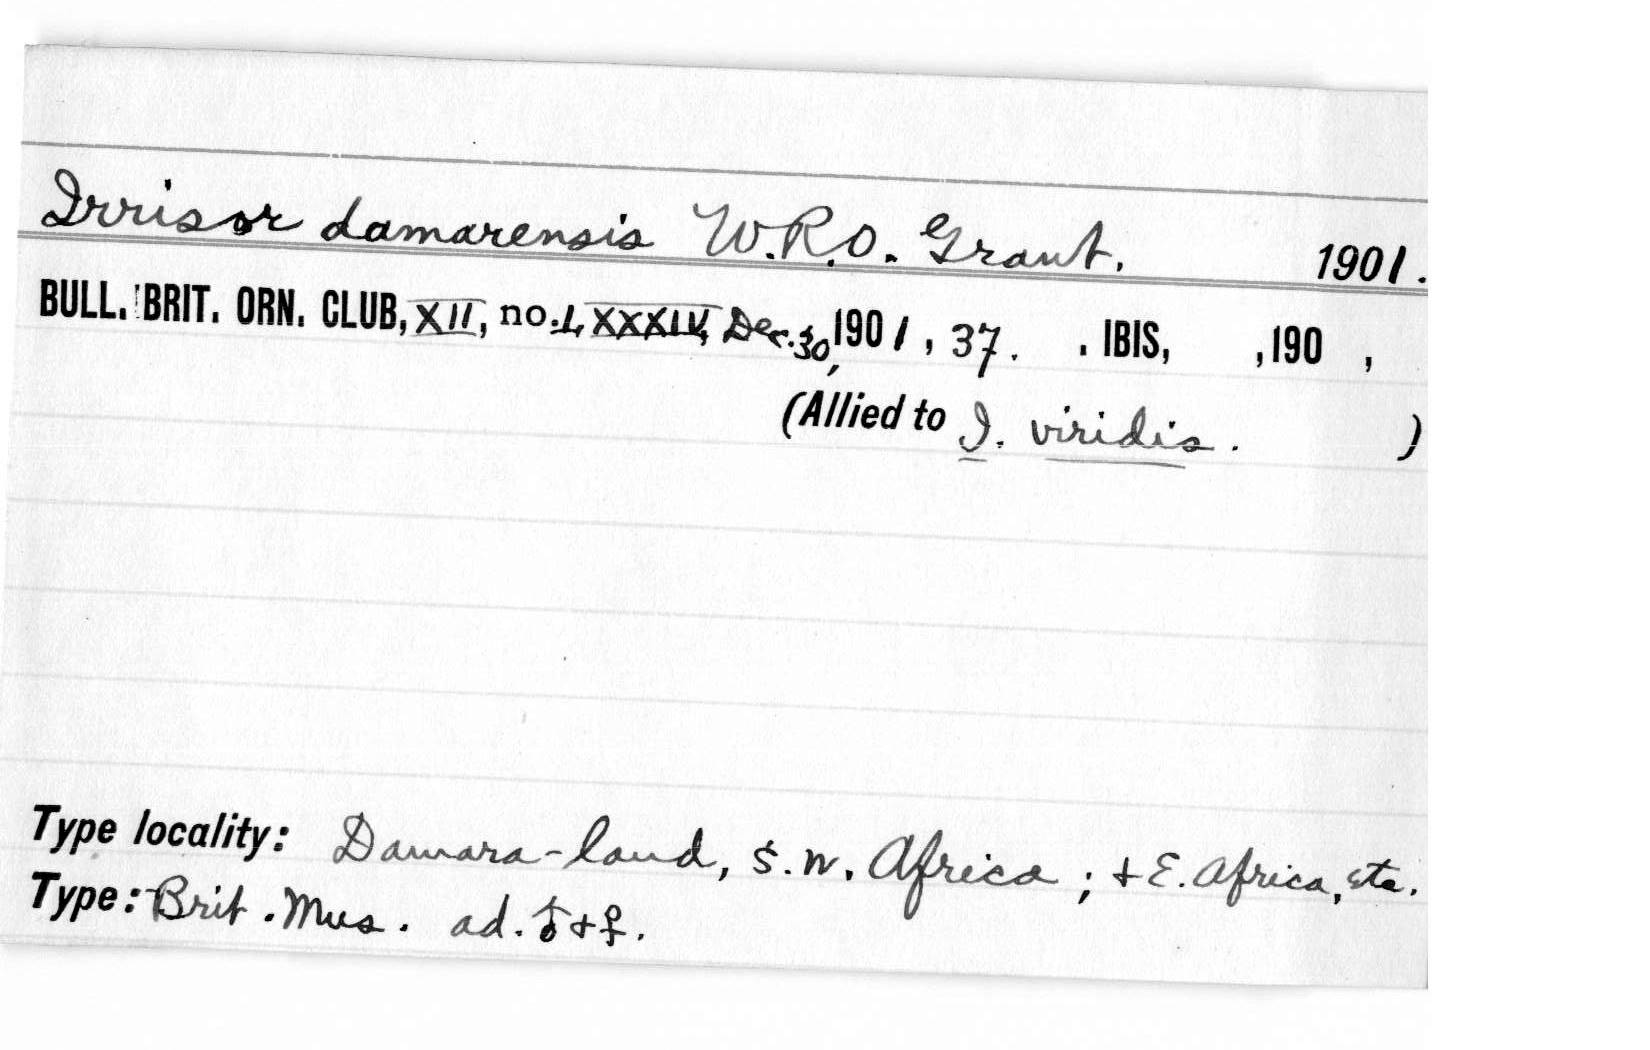 Irrisor damarensis W.R.O. Grant. 1901.
BULL. BRIT. ORN. CLUB, XII, no. LXXXIV, Dec. 30, 1901, 37. . IBIS, ,190 ,
(Allied to I. viridis. )
Type locality: Damara-land, S.W. Africa; + E. Africa, etc.
Type: Brit. Mus. ad. ♂ + ♀.